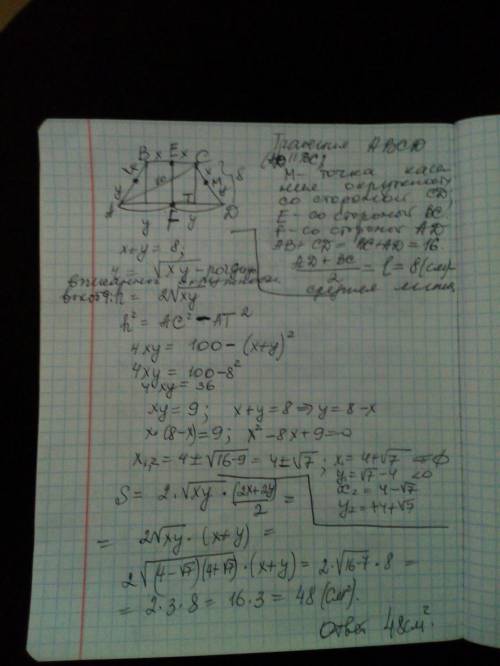 B x E x C
x
x
8
M
10
y
A
F
T
D
y
y
Трапеция ABCD
(AD || BC)
M - точка каса-
ния окружности
со стороной CD,
E - со стороной BC
F - со стороной AD
AB + CD = BC + AD = 16
(AD + BC)/2 = l = 8 (см)
средняя линия
x+y = 8;
= √xy - радиус
вписанной окружности
h = 2√xy
h² = AC² - AT²
4xy = 100 - (x+y)²
4xy = 100 - 8²
4xy = 36
xy = 9; x+y = 8 => y = 8-x
x·(8-x) = 9; x² - 8x + 9 = 0
x₁,₂ = 4 ± √16-9 = 4 ± √7; x₁ = 4+√7
y₁ = √7-4 <0
x₂ = 4-√7
y₂ = +4+√7
S = 2·√xy · (2x+2y)/2 =
= 2√xy · (x+y) =
2√(4-√7)(4+√7) · (x+y) = 2·√16-7 · 8 =
= 2·3·8 = 16·3 = 48 (см²).
Ответ 48 см².